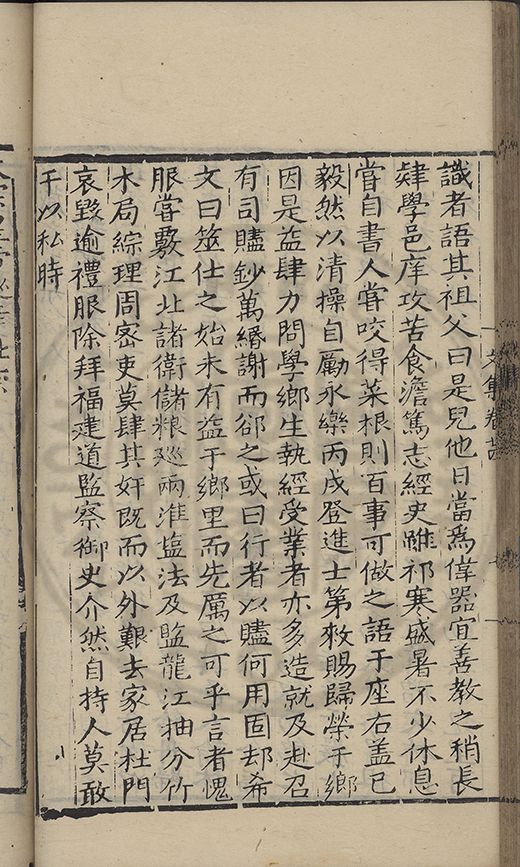 識者語其祖父曰是兒他日當爲偉器宜善教之稍長
肄學邑庠攻苦食澹篤志經史雖祁寒盛暑不少休息
嘗自書人嘗咬得菜根則百事可做之語于座右盖已
毅然以清操自勵永樂丙戌登進士第敕賜歸榮于鄉
因是益肆力問學鄉生執經受業者亦多造就及赴召
有司贐鈔萬緡謝而郤之或曰行者以贐何用固却希
文曰筮仕之始未有益于鄉里而先厲之可乎言者愧
服嘗覈江北諸衛儲粮廵兩淮盐法及監龍江抽分竹
木局綜理周宻吏莫肆其奸既而以外艱去家居杜門
哀毀逾禮服除拜福建道監察御史介然自持人莫敢
干以私時
文集卷
八